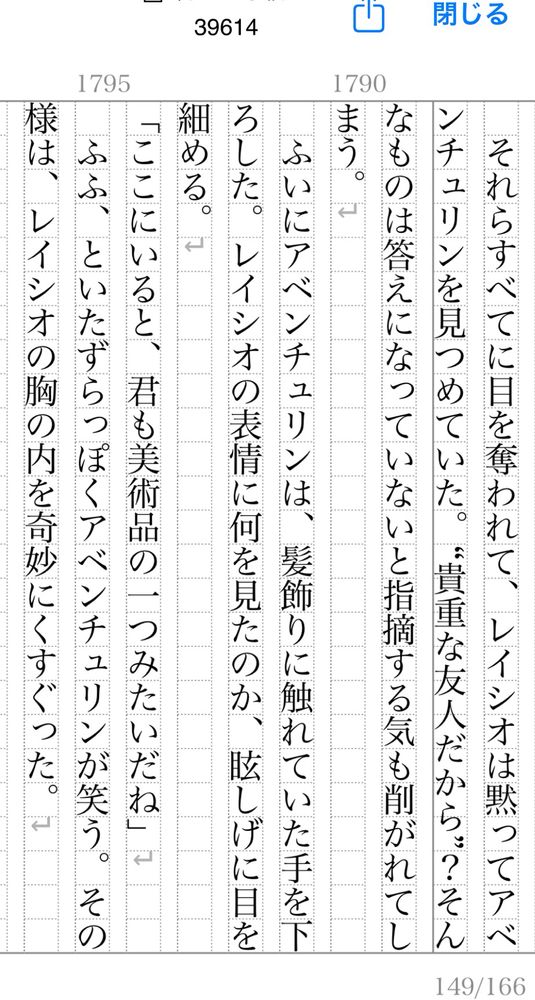 39614
閉じる
1795
1790
それらすべてに目を奪われて、レイシオは黙ってアベ
ンチュリンを見つめていた。“貴重な友人だから”？そん
なものは答えになっていないと指摘する気も削がれてし
まう。↵
ふいにアベンチュリンは、髪飾りに触れていた手を下
ろした。レイシオの表情に何を見たのか、眩しげに目を
細める。↵
「ここにいると、君も美術品の一つみたいだね」↵
ふふ、といたずらっぽくアベンチュリンが笑う。その
様は、レイシオの胸の内を奇妙にくすぐった。↵
149/166